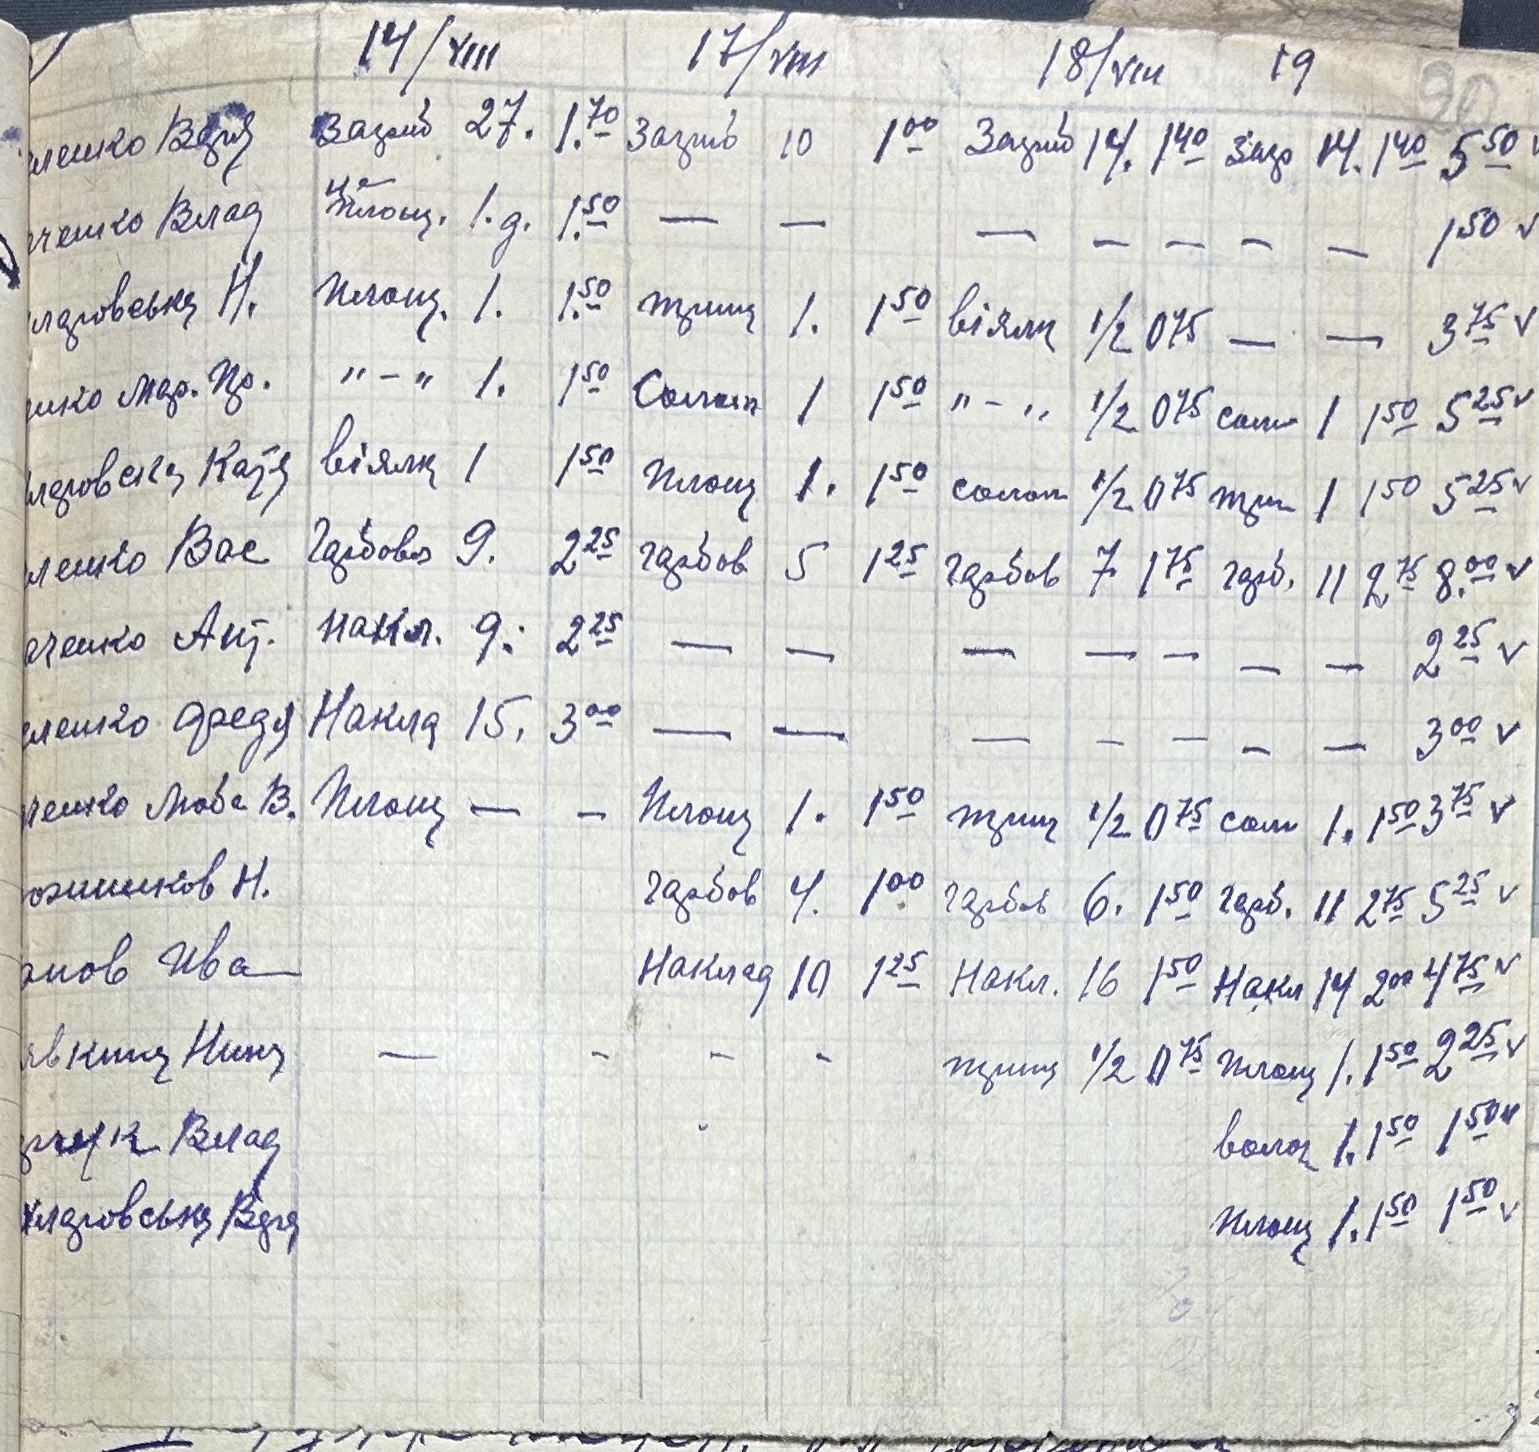 14/VIII 17/VIII 18/VIII 19 90
ленко Варя Загріб 27. 1.70 Загріб 10 1 00 Загріб 14. 1 40 Загр 14. 1 40 5 50 v
ченко Влад на площ. 1.д. 1.50 — — — — — — — 1 50 v
ядровська Н. площ. 1. 1.50 трим 1. 1 50 віялк 1/2 0 75 — — 3 75 v
енко Мар. Пр. "-" 1. 1 50 Солом 1 1 50 "-" 1/2 0 75 солом 1 1 50 5 25 v
ядровська Катя віялка 1 1 50 площ 1. 1 50 солом 1/2 0 75 трим 1 1 50 5 25 v
ленко Вас Гарбов 9. 2 25 гарбов 5 1 25 гарбов 7 1 75 гарб. 11 2 75 8.00 v
ченко Ант. накл. 9. 2 25 — — — — — — — 2 25 v
ленко Федя Накла 15. 3 00 — — — — — — — 3 00 v
ченко Люба В. Площ — - Площ 1. 1 50 трим 1/2 0 75 солом 1. 1 50 3 75 v
ожников Н. гарбов 4. 1 00 гарбов 6. 1 50 гарб. 11 2 75 5 25 v
анов Ива Наклад 10 1 25 Накл. 16 1 50 Накл 14 2 00 4 75 v
явкина Нина — - - - трим 1/2 0 75 площ 1. 1 50 2 25 v
Влад волог 1. 1 50 1 50 v
лядровська Варя площ 1. 1 50 1 50 v